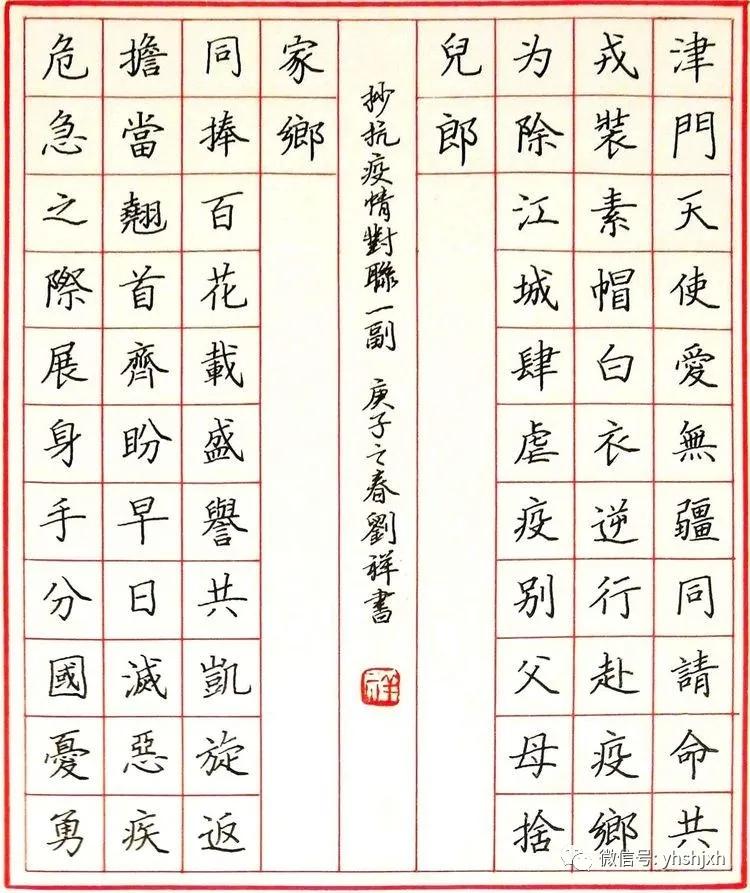 津門天使愛無疆同請命共
戎裝素帽白衣逆行赴疫鄉
为除江城肆虐疫別父母捨
兒郎
危急之際展身手分國憂勇
擔當翹首齊盼早日滅惡疾
同捧百花載盛譽共凱旋返
家鄉
抄抗疫情對聯一副 庚子之春劉祥書
祥
微信号: yhshjxh